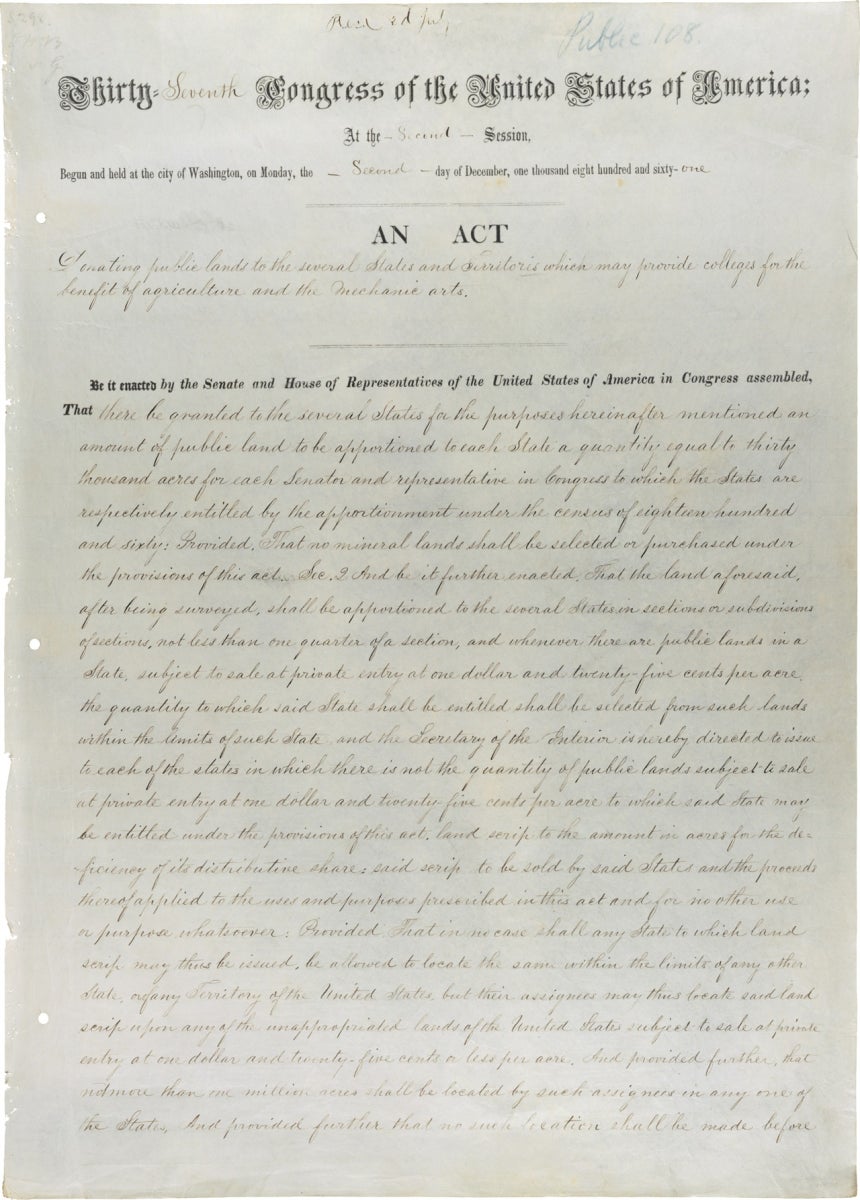 Public 108.
Thirty-Seventh Congress of the United States of America;
At the - Second - Session,
Begun and held at the city of Washington, on Monday, the - Second - day of December, one thousand eight hundred and sixty-one
AN ACT
Donating public lands to the several States and Territoris which may provide colleges for the
benefit of agriculture and the Mechanic arts.
Be it enacted by the Senate and House of Representatives of the United States of America in Congress assembled,
That there be granted to the several States for the purposes hereinafter mentioned an
amount of public land to be apportioned to each State a quantity equal to thirty
thousand acres for each Senator and representative in Congress to which the States are
respectively entitled by the apportionment under the census of eighteen hundred
and sixty: Provided, That no mineral lands shall be selected or purchased under
the provisions of this act. Sec. 2 And be it further enacted, That the land aforesaid,
after being surveyed, shall be apportioned to the several States in sections or subdivisions
of sections, not less than one quarter of a section, and whenever there are public lands in a
State, subject to sale at private entry at one dollar and twenty-five cents per acre,
the quantity to which said State shall be entitled shall be selected from such lands
within the limits of such State, and the Secretary of the Interior is hereby directed to issue
to each of the states in which there is not the quantity of public lands subject to sale
at private entry at one dollar and twenty-five cents per acre to which said State may
be entitled under the provisions of this act, land scrip to the amount in acres for the de=
ficiency of its distributive share: said scrip to be sold by said States and the proceeds
thereof applied to the uses and purposes prescribed in this act and for no other use
or purpose whatsoever: Provided, That in no case shall any State to which land
scrip may thus be issued, be allowed to locate the same within the limits of any other
State, or of any Territory of the United States, but their assignees may thus locate said land
scrip upon any of the unappropriated lands of the United States subject to sale at private
entry at one dollar and twenty-five cents or less per acre. And provided further, that
not more than one million acres shall be located by such assignees in any one of
the States, And provided further that no such location shall be made before